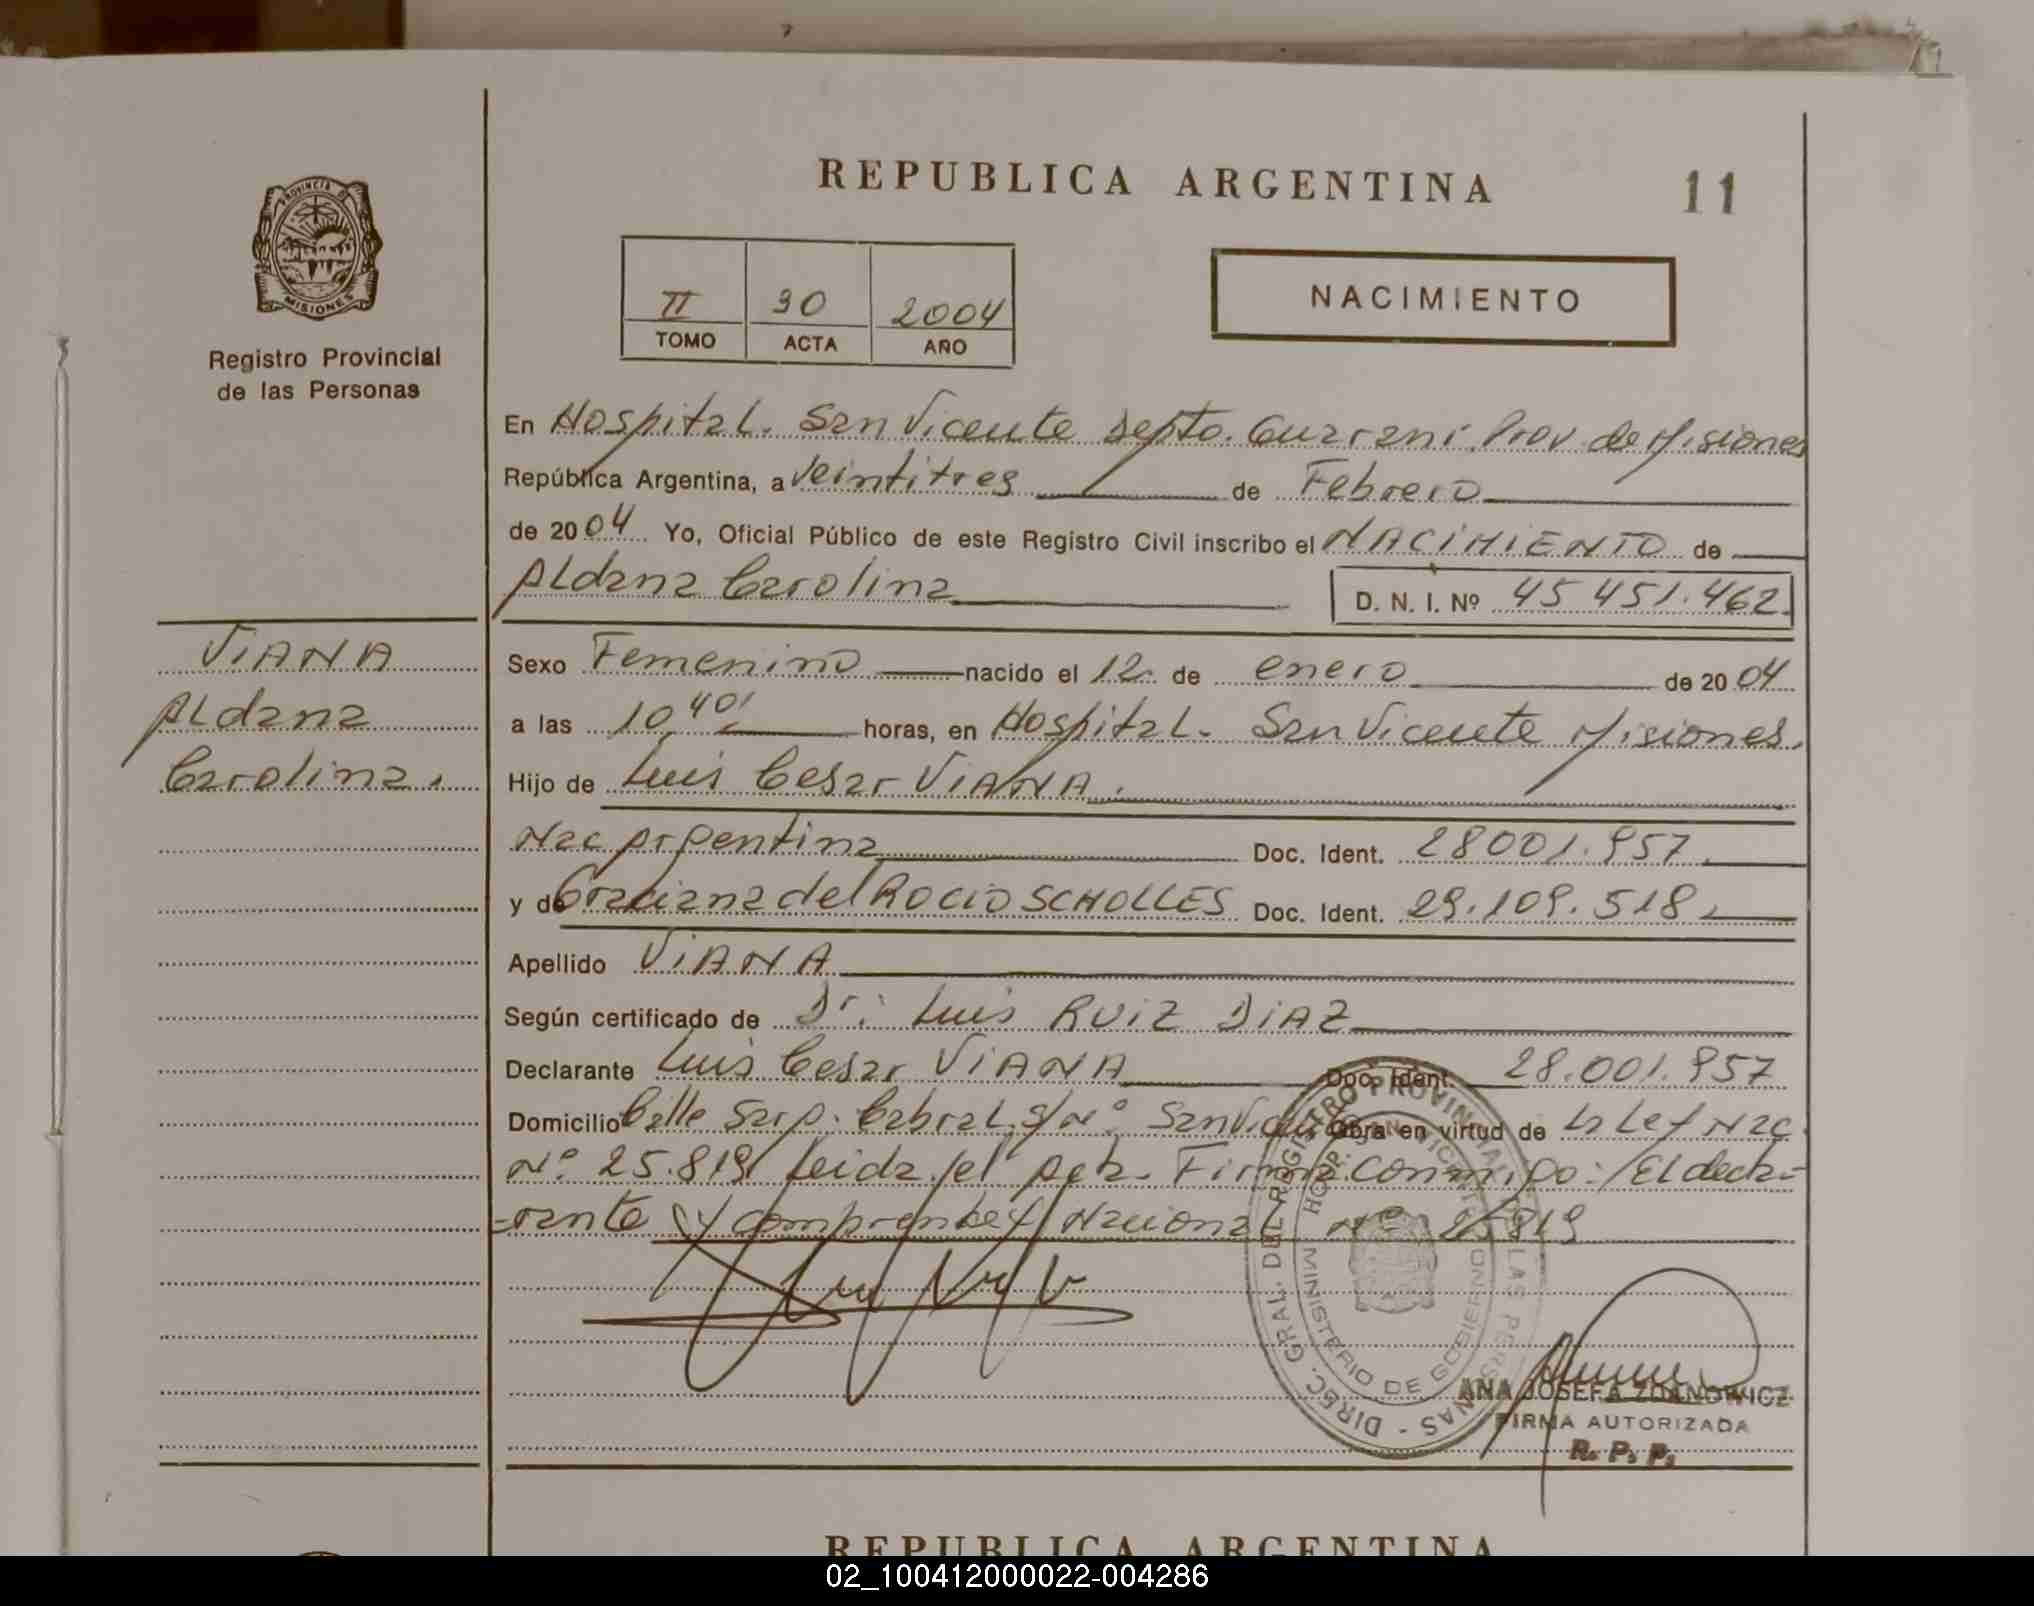 REPUBLICA ARGENTINA
11
PROVINCIA D
MISIONES
Registro Provincial
de las Personas
II 30 2004
TOMO ACTA AÑO
NACIMIENTO
En Hospital. San Vicente Depto. Guarani. Prov. de Misiones
República Argentina, a Veintitres de Febrero
de 2004 Yo, Oficial Público de este Registro Civil inscribo el NACIMIENTO de
Aldana Carolina D. N. I. Nº 45 451.462
VIANA
Aldana
Carolina.
Sexo Femenino nacido el 12 de enero de 2004
a las 10,40' horas, en Hospital. San Vicente Misiones.
Hijo de Luis Cesar VIANA.
Nac Argentina Doc. Ident. 28001.957
y de Graciana del ROCIO SCHOLLES Doc. Ident. 29.109.518
Apellido VIANA
Según certificado de Dr: Luis RUIZ DIAZ
Declarante Luis Cesar VIANA Doc. Ident. 28.001.957
Domicilio Calle Sarg. Cabral s/Nº San Vicente Obra en virtud de la Ley Nac.
Nº 25.819 Leida el Acta. Firma conmigo: El decla-
-rante Nacional Nº 25819
DIREC. GRAL. DEL REGISTRO PROVINCIAL DE LAS PERSONAS -
MINISTERIO DE GOBIERNO
ANA JOSEFA ZDANOWICZ
FIRMA AUTORIZADA
R. P. P.
REPUBLICA ARGENTINA
02_100412000022-004286